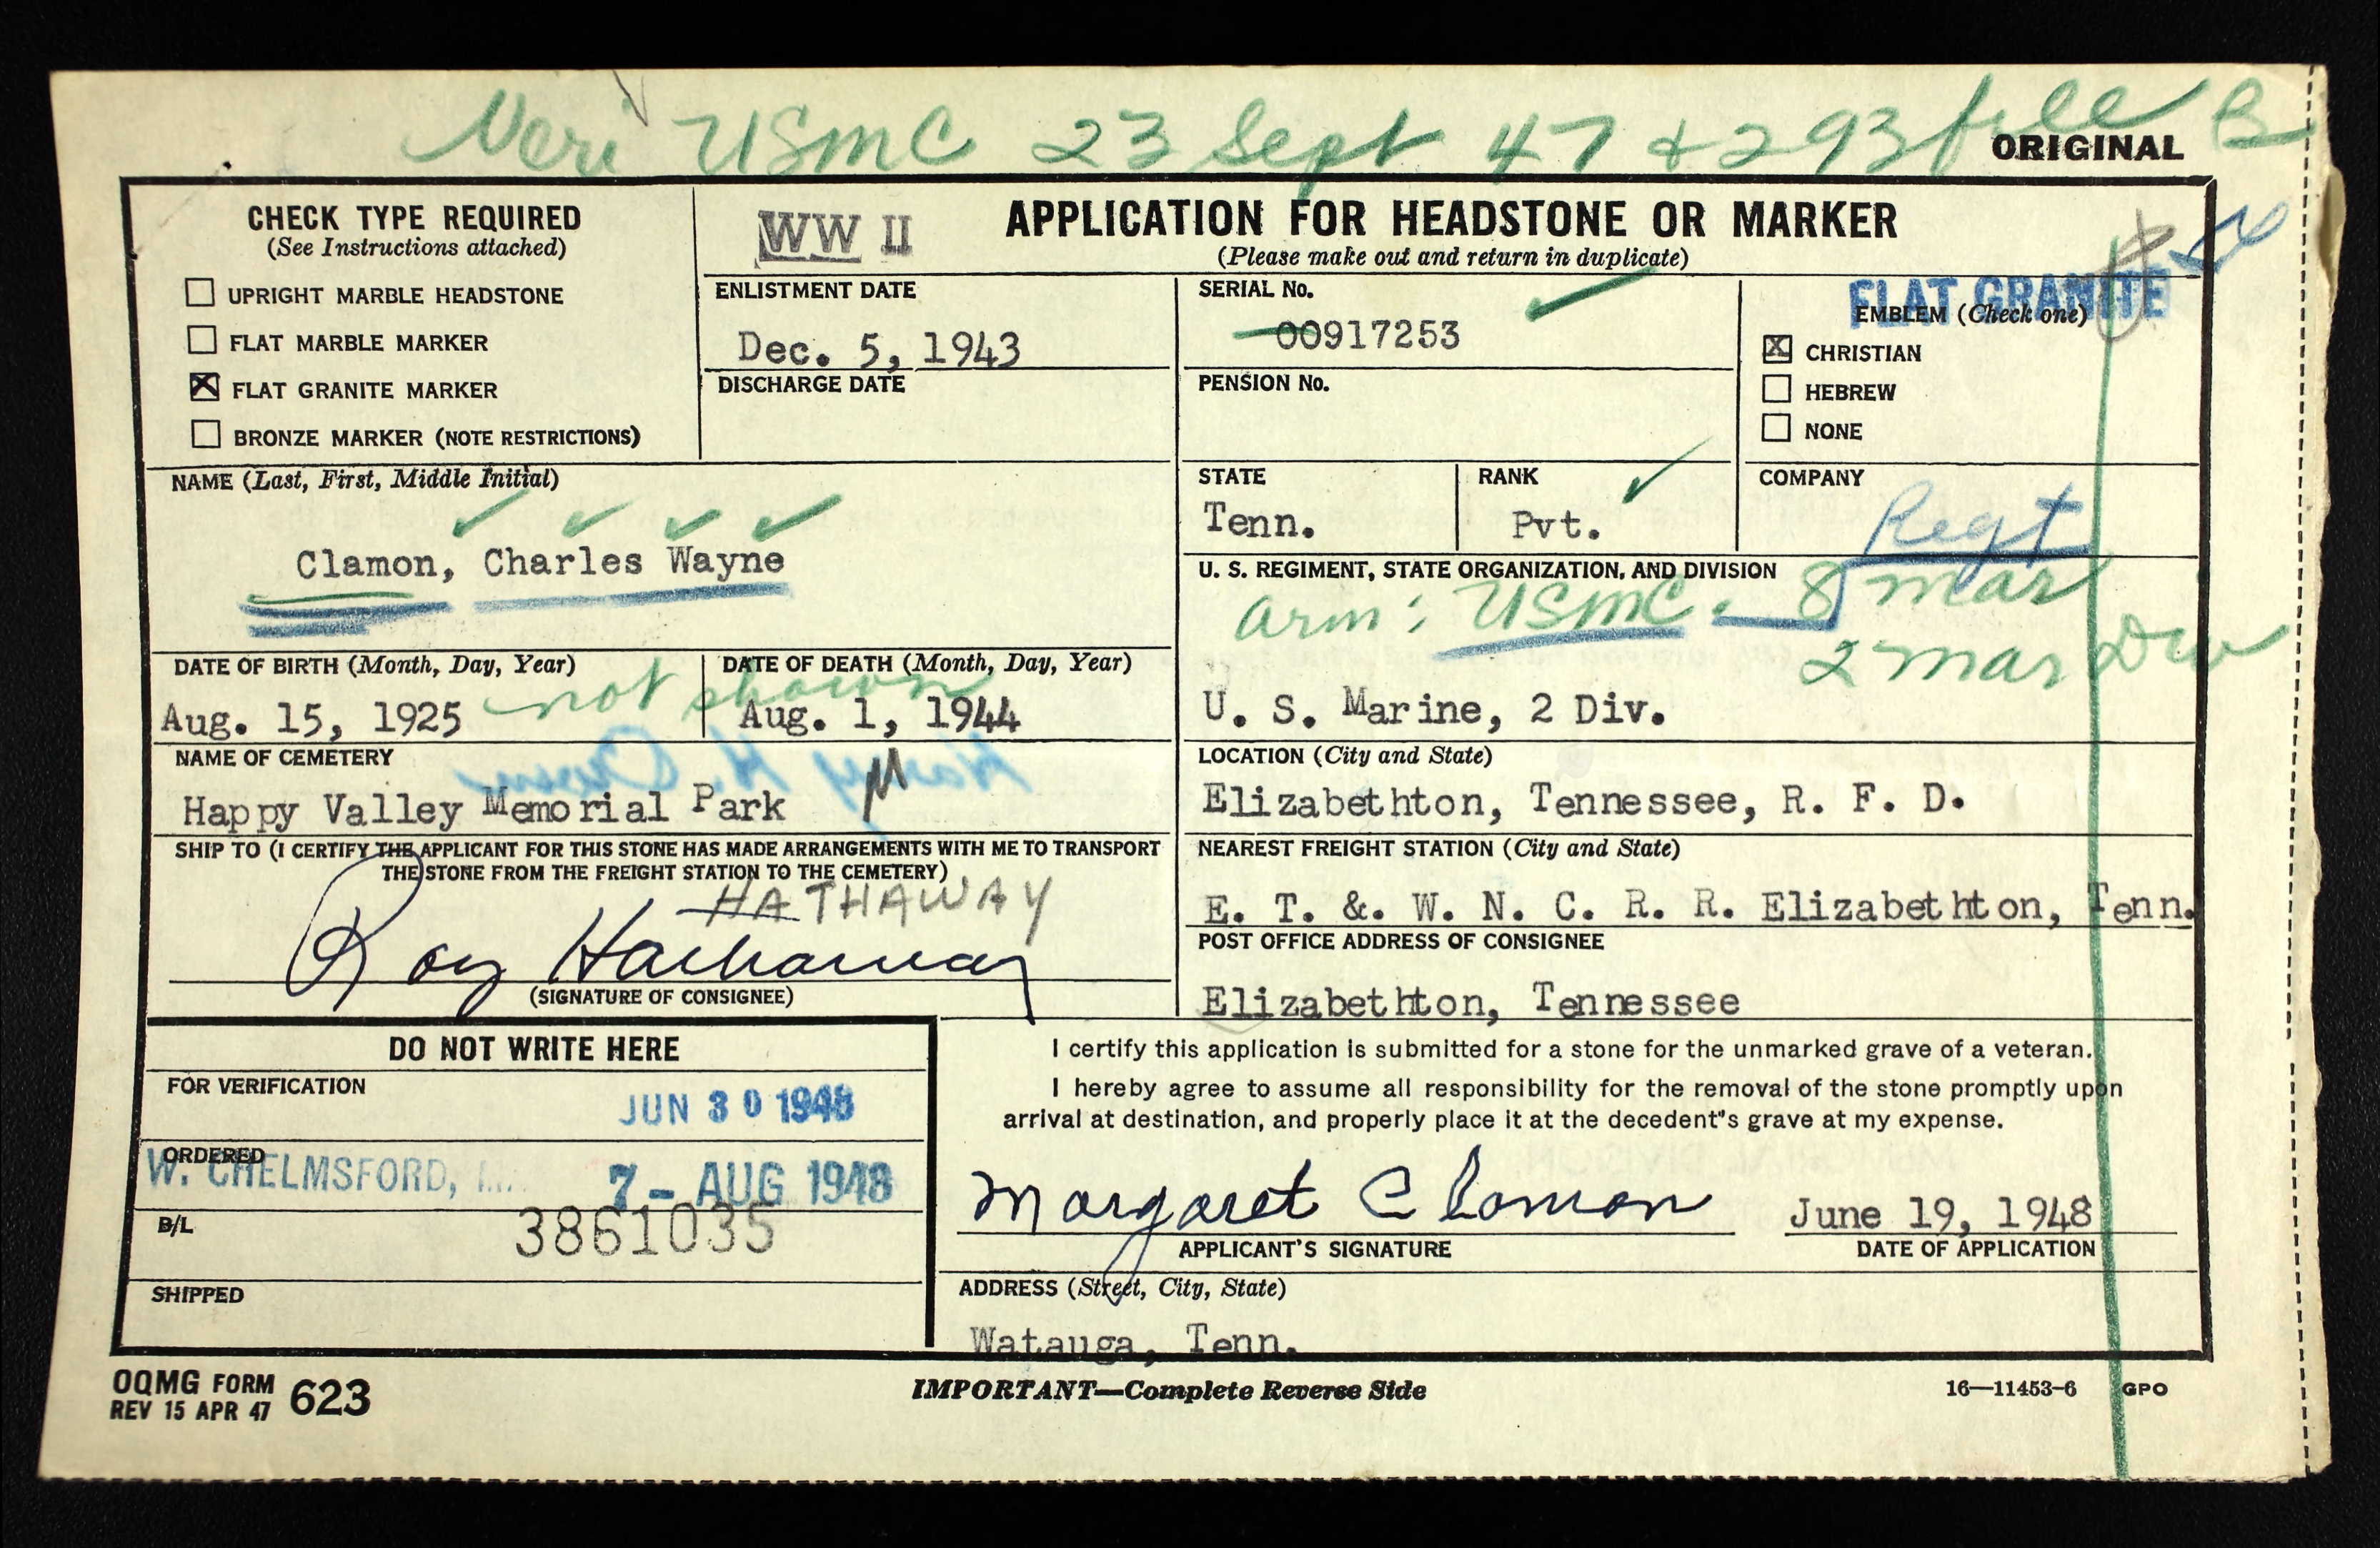 Veri USMC 23 Sept 47 & 293 file B
ORIGINAL
CHECK TYPE REQUIRED
(See Instructions attached)
☐ UPRIGHT MARBLE HEADSTONE
☐ FLAT MARBLE MARKER
☒ FLAT GRANITE MARKER
☐ BRONZE MARKER (NOTE RESTRICTIONS)
WW II
APPLICATION FOR HEADSTONE OR MARKER
(Please make out and return in duplicate)
ENLISTMENT DATE
Dec. 5, 1943
DISCHARGE DATE
SERIAL No.
00917253
PENSION No.
FLAT GRANITE
EMBLEM (Check one)
☒ CHRISTIAN
☐ HEBREW
☐ NONE
NAME (Last, First, Middle Initial)
Clamon, Charles Wayne
STATE
Tenn.
RANK
Pvt.
COMPANY
Regt
U. S. REGIMENT, STATE ORGANIZATION, AND DIVISION
arm: USMC. 8 Mar
2 Mar Div
U. S. Marine, 2 Div.
DATE OF BIRTH (Month, Day, Year)
Aug. 15, 1925
not shown
DATE OF DEATH (Month, Day, Year)
Aug. 1, 1944
NAME OF CEMETERY
Happy Valley Memorial Park
LOCATION (City and State)
Elizabethton, Tennessee, R. F. D.
SHIP TO (I CERTIFY THE APPLICANT FOR THIS STONE HAS MADE ARRANGEMENTS WITH ME TO TRANSPORT
THE STONE FROM THE FREIGHT STATION TO THE CEMETERY)
HATHAWAY
Roy Hathaway
(SIGNATURE OF CONSIGNEE)
NEAREST FREIGHT STATION (City and State)
E. T. &. W. N. C. R. R. Elizabethton, Tenn.
POST OFFICE ADDRESS OF CONSIGNEE
Elizabethton, Tennessee
DO NOT WRITE HERE
FOR VERIFICATION
JUN 30 1948
ORDERED
W. CHELMSFORD,
7 - AUG 1948
B/L
3861035
SHIPPED
I certify this application is submitted for a stone for the unmarked grave of a veteran.
I hereby agree to assume all responsibility for the removal of the stone promptly upon
arrival at destination, and properly place it at the decedent"s grave at my expense.
Margaret Clamon
APPLICANT'S SIGNATURE
June 19, 1948
DATE OF APPLICATION
ADDRESS (Street, City, State)
Watauga, Tenn.
OQMG FORM 623
REV 15 APR 47
IMPORTANT—Complete Reverse Side
16—11453-6 GPO